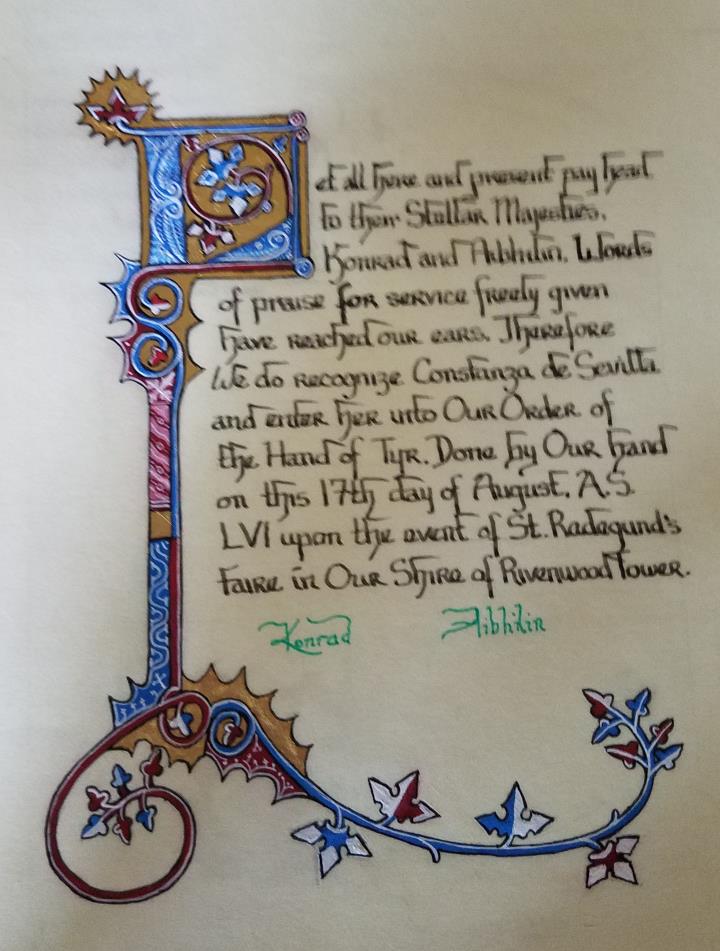 Let all here and present pay head
to their Stellar Majesties,
Konrad and Aibhilin. Words
of praise for service freely given
have reached our ears. Therefore
We do recognize Constanza de Sevilla
and enter her into Our Order of
the Hand of Tyr. Done by Our hand
on this 17th day of August, A.S.
LVI upon the event of St. Radagund's
Faire in Our Shire of Rivenwood Tower.
Konrad Aibhilin